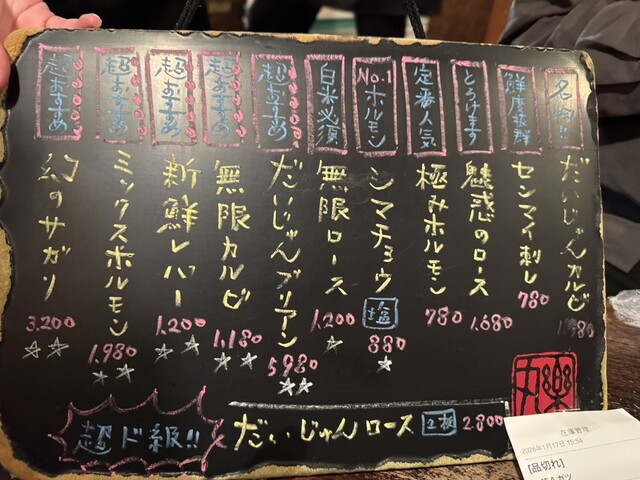 名物!!
だいじゅんカルビ
鮮度抜群
センマイ刺し
780
とろけます
魅惑のロース
1,680
定番人気
極みホルモン
780
No.1
ホルモン
シマチョウ
塩
880
☆
白米必須
無限ロース
1,200
☆
超おすすめ
だいじゅんブリアン
5980
☆☆
超おすすめ
無限カルビ
1,180
☆☆
超おすすめ
新鮮レバー
1,200
☆☆
超おすすめ
ミックスホルモン
1,980
☆☆
超おすすめ
幻のサガリ
3,200
☆☆
超ド級!!
だいじゅんロース
2800
在庫管理
2026年1月17日 15:54
[品切れ]